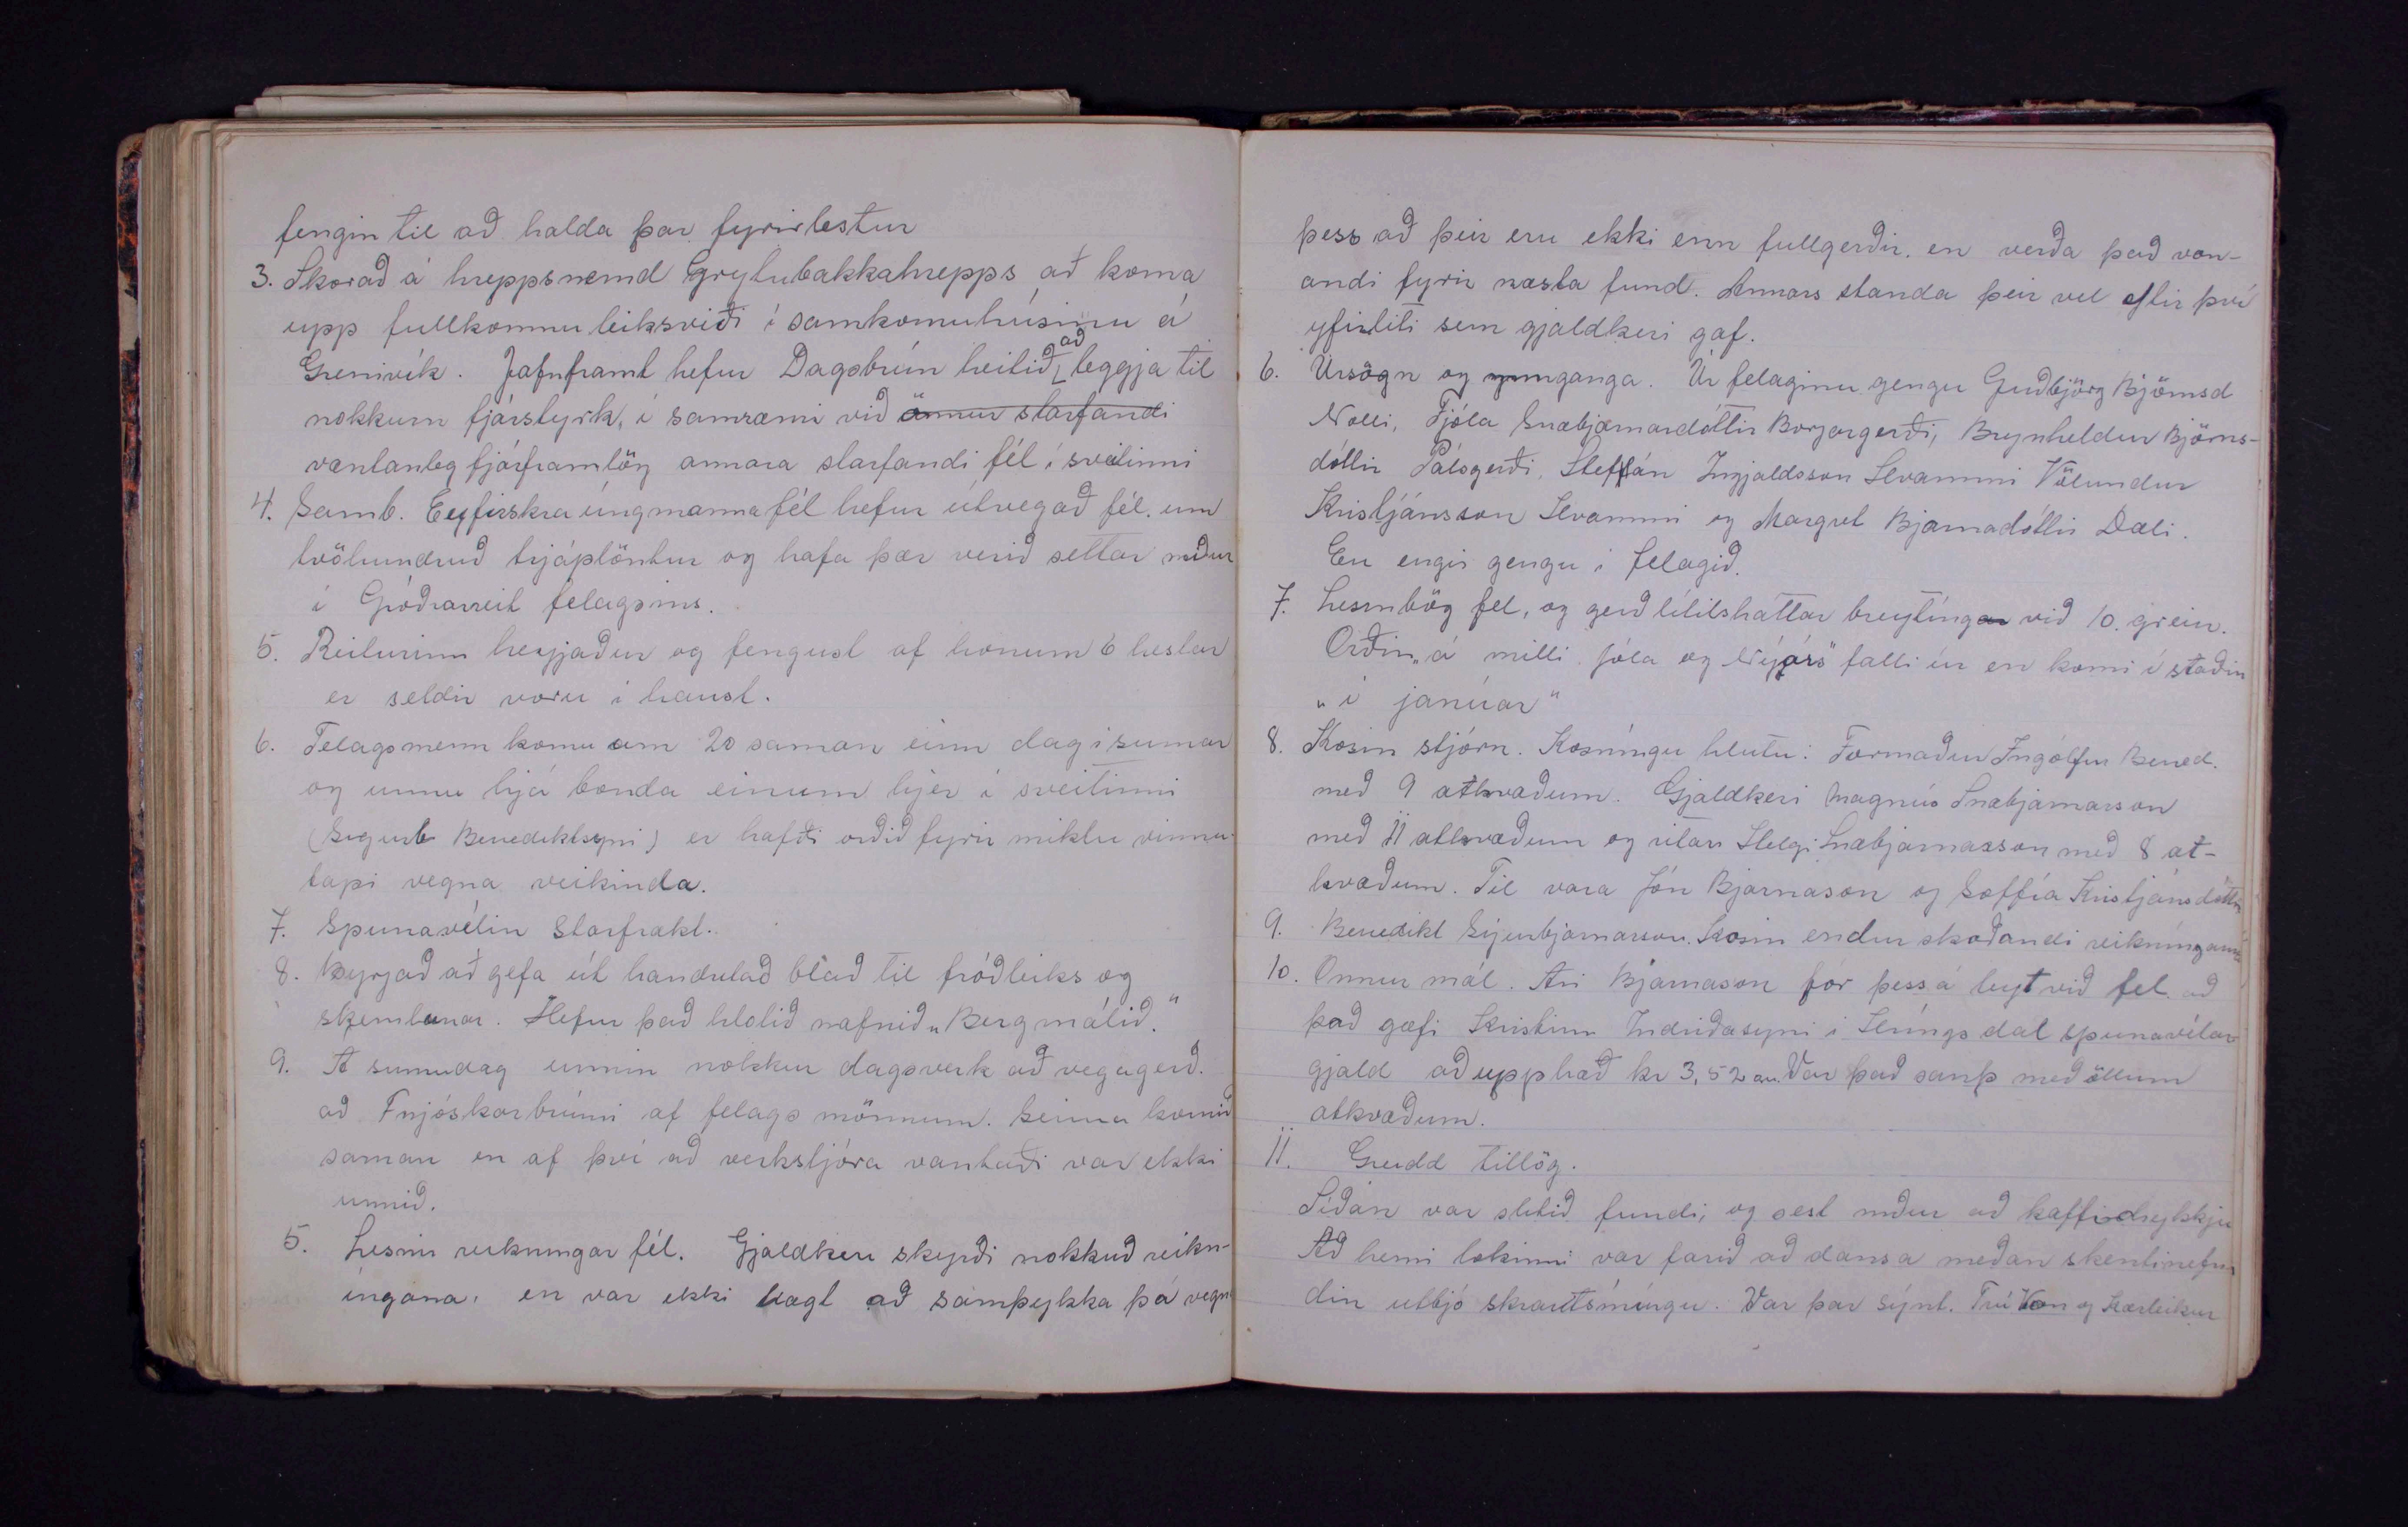 fengin til að halda þar fyrirlestur
3. Skorað á hreppsnemd Grytubakkahrepps að koma
upp fullkomnu leiksviði í samkomuhúsinu á
Grenivík. Jafnframt hefur Dagsbrún heitið að leggja til
nokkurn fjárstyrk, í samræmi við önnur starfandi
væntanleg fjárframlög annara starfandi fél í sveitinni
4. Samb. Eyfirskra úngmannafél hefur útvegað fél. um
tvöhundruð trjáplöntur og hafa þær verið settar niður
í Gróðrarreit felagsins.
5. Reiturinn heyjaður og fengust af honum 6 hestar
er seldir voru í haust.
6. Felagsmenn komu um 20 saman einn dag í sumar
og unnu hjá bonda einum hjer í sveitinni
(Sigurb Benediktsyni) er hafði orðið fyrir miklu vinnu-
tapi vegna veikinda.
7. Spunavélin Starfrækt.
8. Byrjað að gefa út handritað blað til fróðleiks og
skemtunar. Hefur það hlotið nafnið „Bergmálið."
9. Á sunnudag unnin nokkur dagsverk að vegagerð.
að Fnjóskarbrúnni af felags mönnum. Seinna komið
saman en af því að verkstjóra vantaði var ekki
unnið.
5. Lesnir reikningar fél. Gjaldkeri skyrði nokkuð reikn-
íngana. en var ekki hægt að samþykka þá vegna
þess að þeir eru ekki enn fullgerðir. en verða það von-
andi fyrir næsta fund. Annars standa þeir vel eftir því
yfirliti sem gjaldkeri gaf.
6. Úrsögn og inganga. Úr felaginu gengu Guðbjörg Björnsd
Nolli, Fjóla Snæbjarnardóttir Borgargerði, Brynhildur Björns-
dóttir Pálsgerði, Steffán Ingjaldsson Hvammi Völundur
Kristjánsson Hvammi og Margret Bjarnadóttir Dæli.
En engir gengu í felagið.
7. Lesin lög fel, og gerð lítilsháttar breytingar við 10. grein.
Orðin „á milli Jóla og Nýjárs" falli úr en komi í staðin
„í janúar"
8. Kosin stjórn. Kosníngu hlutu: Formaður Ingólfur Bened.
með 9 atkvæðum. Gjaldkeri Magnús Snæbjarnarson
með 11 atkvæðum og ritari Helgi Snæbjarnarson með 8 at-
kvæðum. Til vara Jón Bjarnason og Soffía Kristjánsdóttir
9. Benedikt Sigurbjarnarson. Kosin endurskoðandi reikninganna
10. Önnur mál. Ari Bjarnason fór þess á leyt við fel. að
það gæfi Kristinn Indriðasyni í Höfða dal spunavélar
gjald að upphæð kr 3,52 au. Var það samþ með öllum
atkvæðum.
11. Greidd tillög.
Síðan var slitið fundi, og sest niður að kaffidrykkju
Að henni lokinni var farið að dansa meðan skemtinefn
din utbjó skrautsíningu. Var þar sýnt. Trú Von og Kærleikur